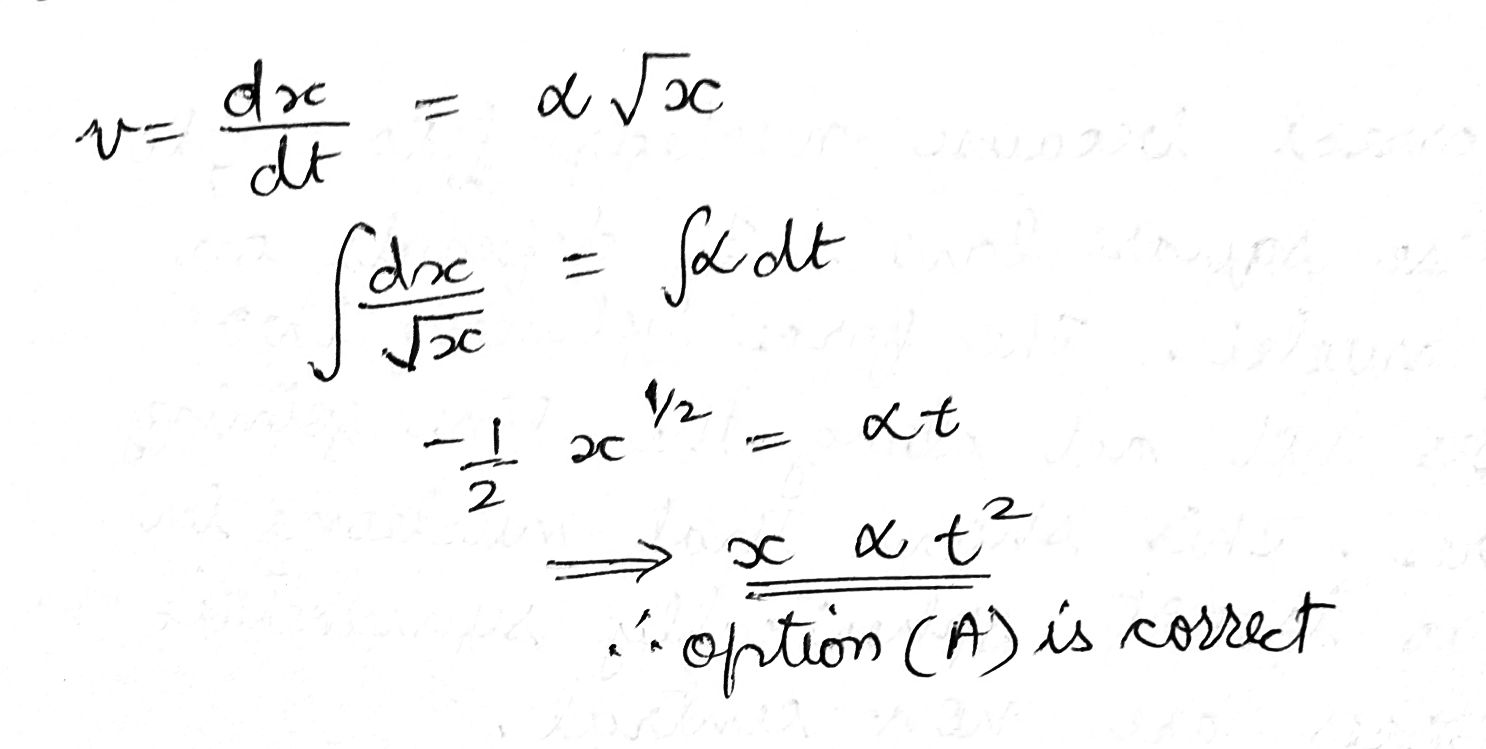 v = dx/dt = α √x
∫ dx/√x = ∫ α dt
-1/2 x^1/2 = αt
⟹ x α t²
∴ option (A) is correct